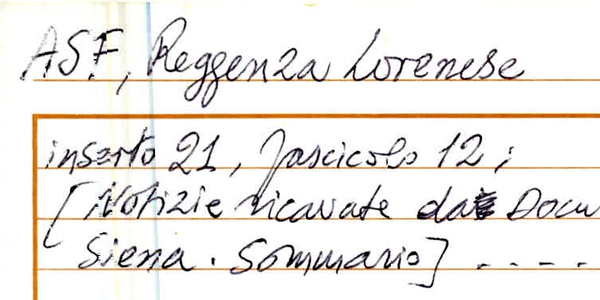 ASF, Reggenza Lorenese
inserto 21, fascicolo 12;
[Notizie ricavate da Docu
Siena. Sommario] ....